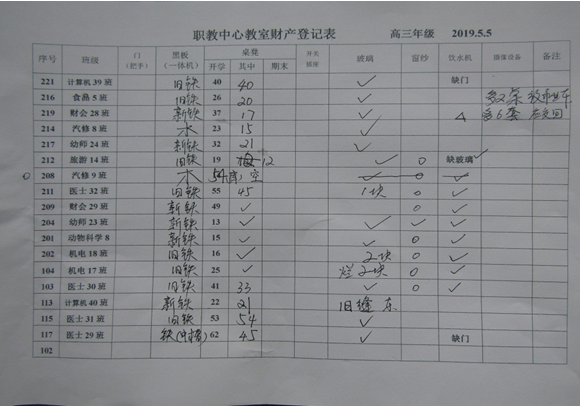 职教中心教室财产登记表 高三年级 2019.5.5
序号 班级 门(把手) 黑板(一体机) 桌凳 开学 其中 期末 开关插座 玻璃 窗纱 饮水机 摄像设备 备注
221 计算机 39 班 旧铁 40 40 ✓ 缺门
216 食品 5 班 旧铁 26 20 ✓
219 财会 28 班 新铁 37 17 ✓
214 汽修 8 班 木 23 15 ✓
217 幼师 24 班 新铁 32 21 ✓
212 旅游 14 班 旧铁 19 12 ✓ 0 缺玻璃 ✓
208 汽修 9 班 木 54 空 ✓ 0 ✓
211 医士 32 班 旧铁 55 45 1块 0 ✓
209 财会 29 班 新铁 49 ✓ 0 ✓
204 幼师 23 班 新铁 13 ✓ ✓ ✓ ✓
201 动物科学 8 新铁 15 ✓ ✓ 0 ✓
202 机电 18 班 旧铁 16 ✓ 2块 0 ✓
104 机电 17 班 旧铁 25 ✓ 烂2块 0 ✓
103 医士 30 班 旧铁 41 33 ✓ 0 ✓
113 计算机 40 班 新铁 22 21 旧缝 东
115 医士 31 班 旧铁 53 54 ✓
117 医士 29 班 铁 62 45 ✓ 缺门
102